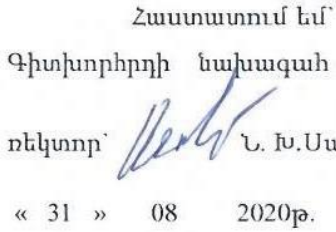 Հաստատում եմ՝
Գիտխորհրդի նախագահ
ռեկտոր՝ Ն. Խ.
« 31 » 08 2020թ.